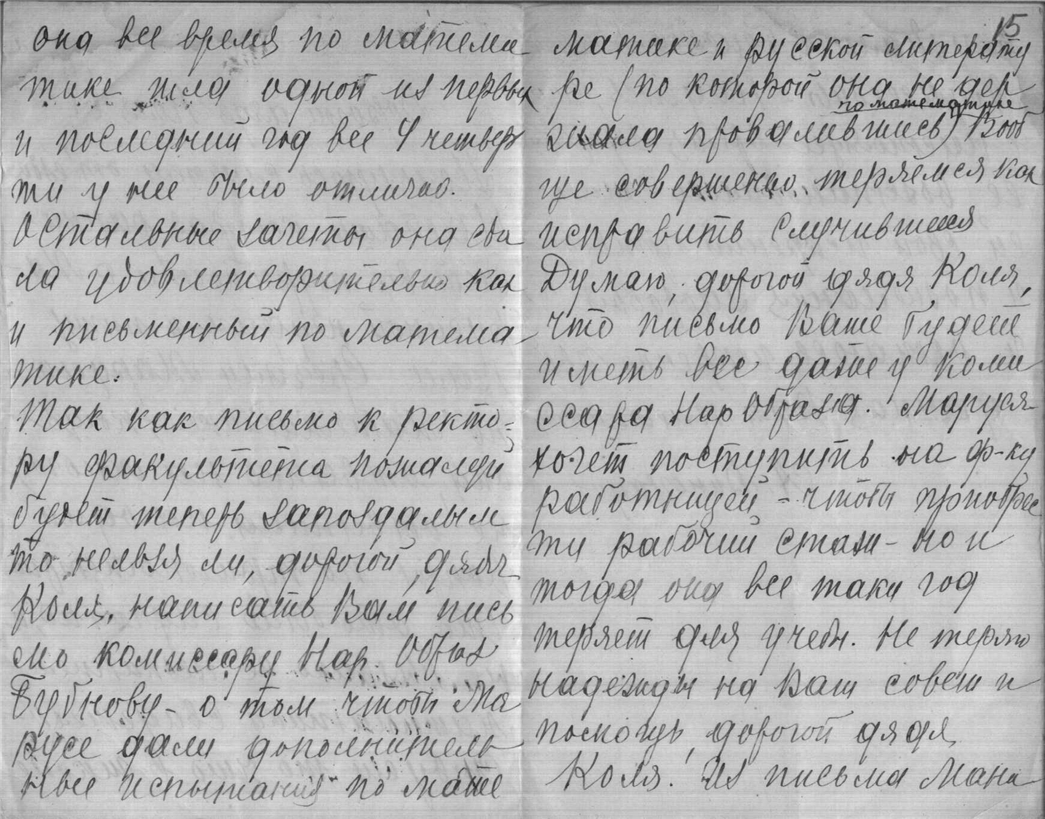 она все время по матема
тике шла одной из первых
и последний год все 4 четвер
ти у нее было отлично.
Остальные зачеты она сда
ла удовлетворительно как
и письменный по матема
тике.
Так как письмо к ректо-
ру факультета пожалуй
будет теперь запоздалым
то нельзя ли, дорогой дядя
Коля, написать Вам пись
мо комиссару Нар. Образ
Бубнову - о том чтобы Ма
русе дали дополнитель
ные испытания по мате
15
матике и русской литерату
ре (по которой она не дер
по математике
жала провалившись) Вооб
ще совершенно теряемся как
исправить случившееся
Думаю, дорогой дядя Коля,
что письмо Ваше будет
иметь вес даже у коми
ссара Нар Образа. Маруся
хочет поступить на ф-ку
работницей - чтобы приобрес
ти рабочий стаж - но и
тогда она все таки год
теряет для учебн. Не теряю
надежды на Ваш совет и
помощь, дорогой дядя
Коля! Из письма Мани